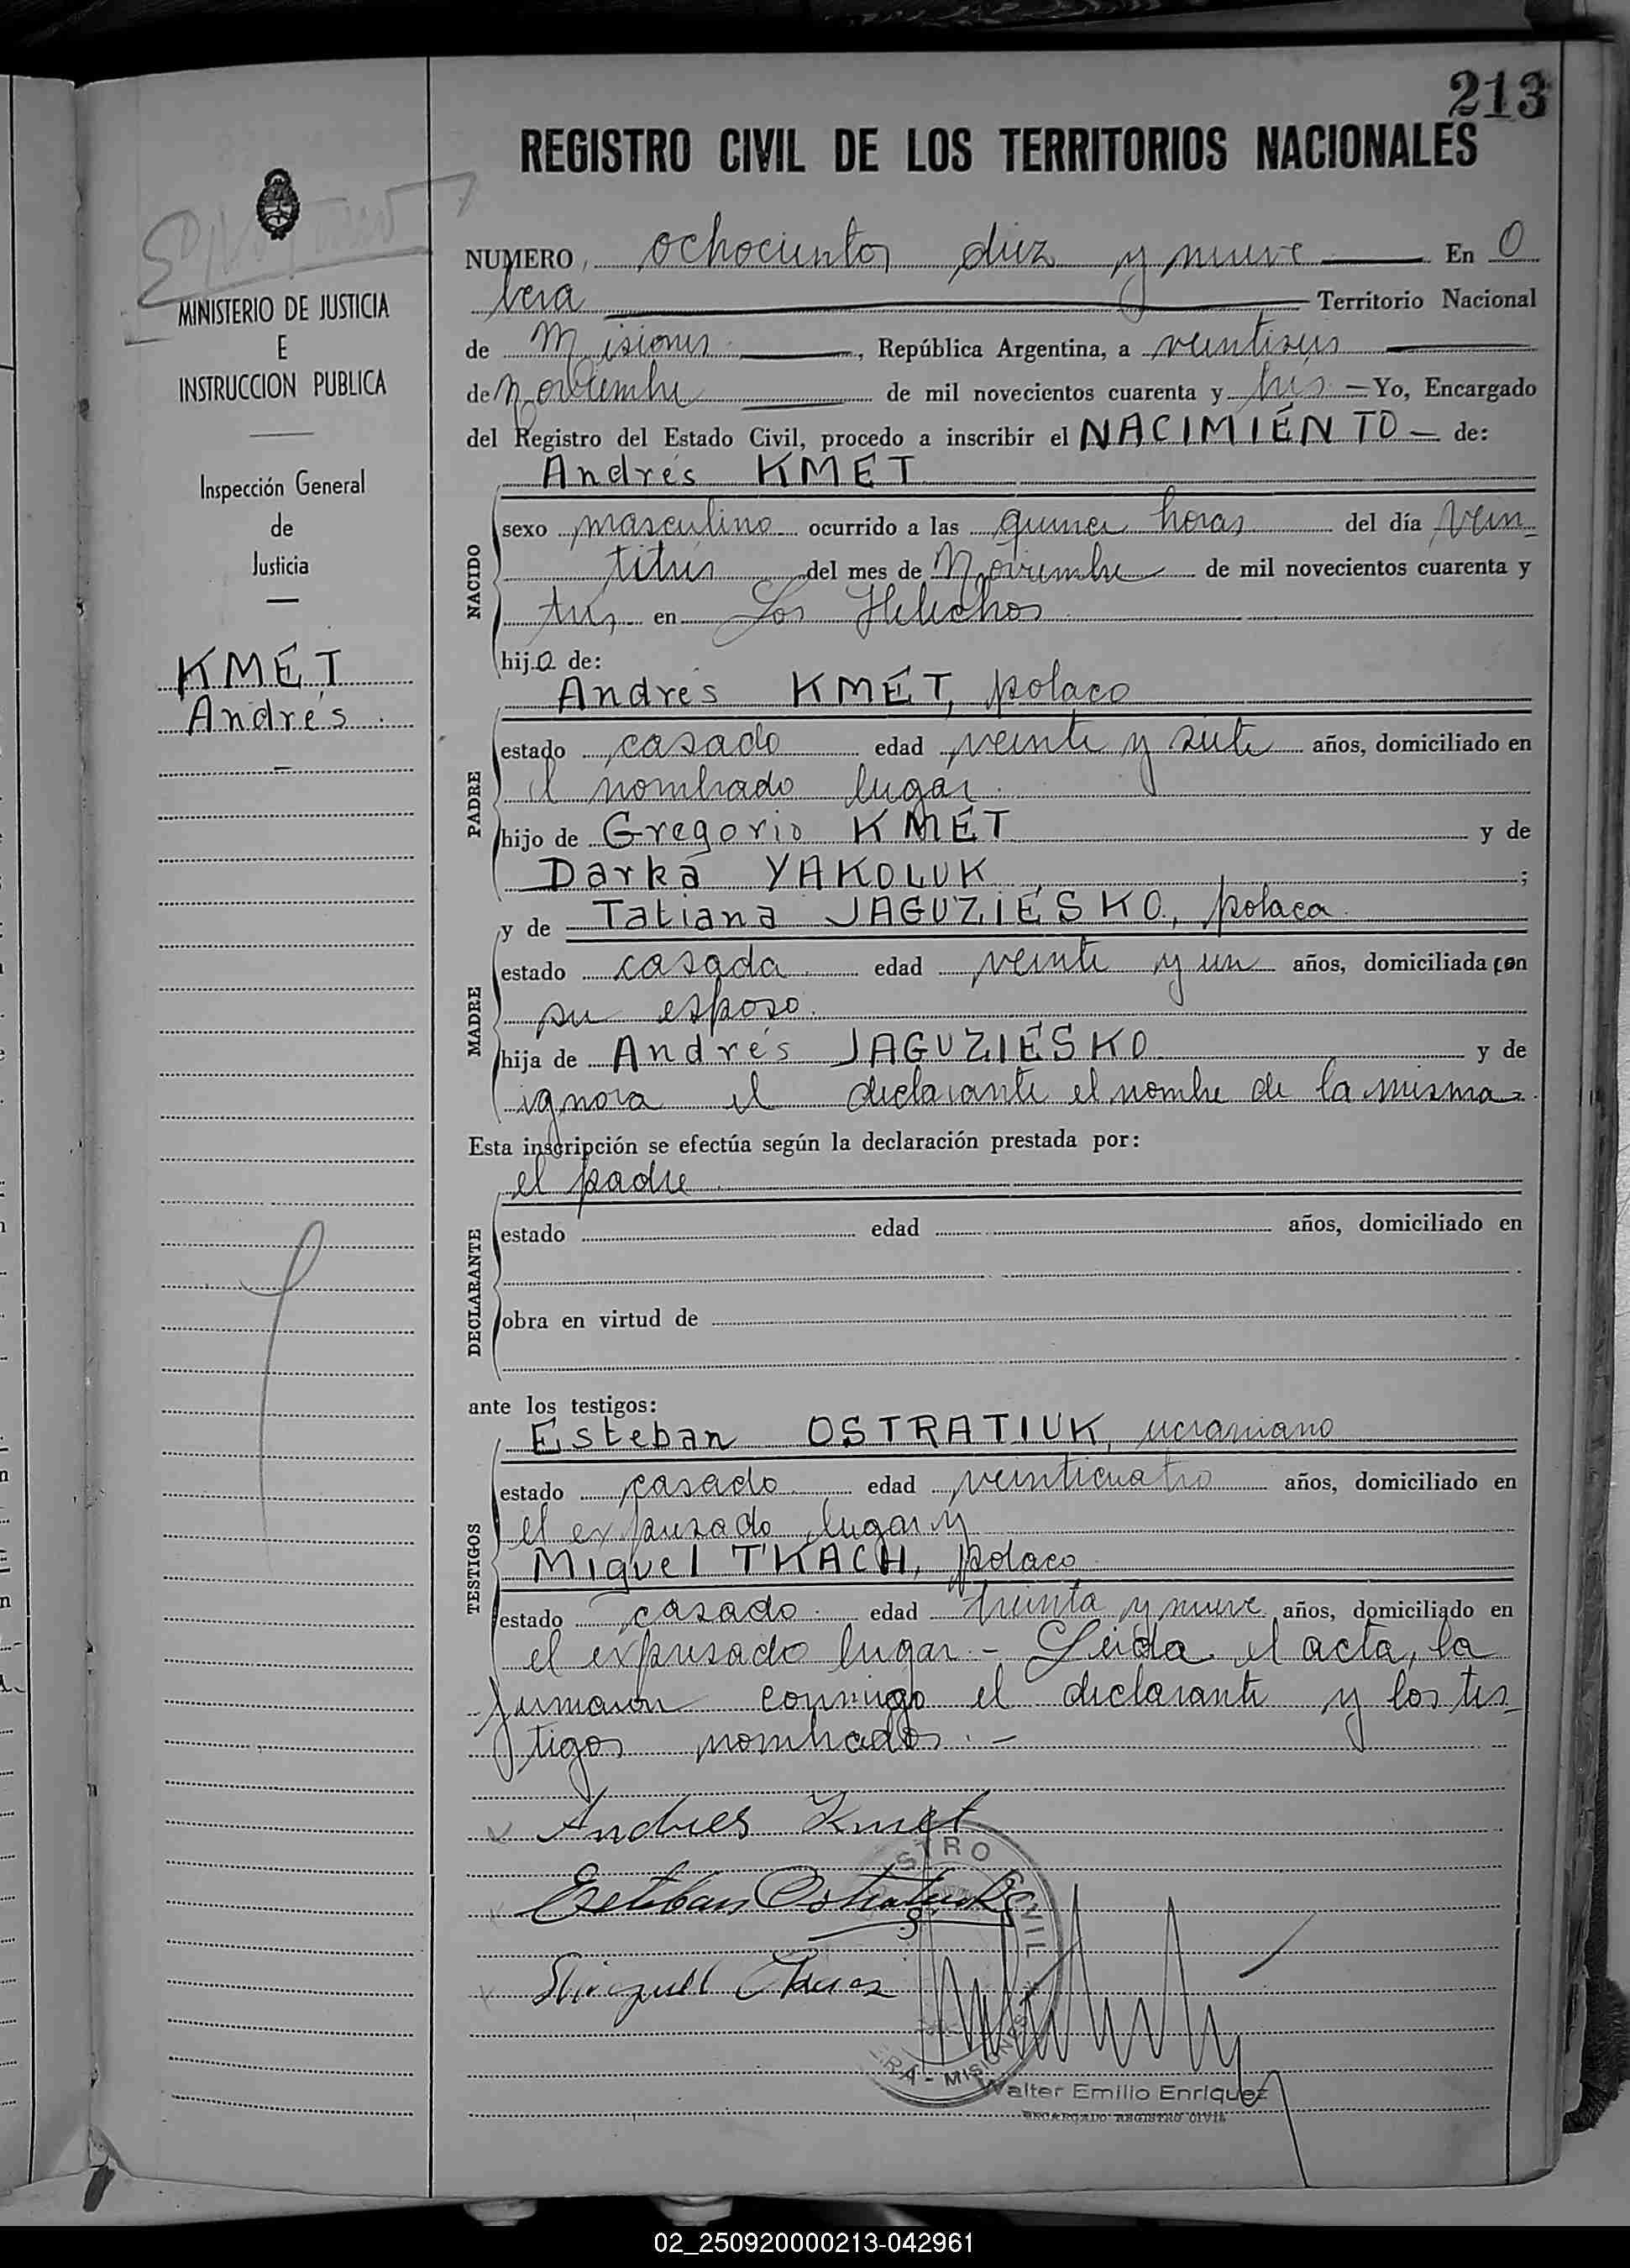 213
REGISTRO CIVIL DE LOS TERRITORIOS NACIONALES
MINISTERIO DE JUSTICIA
E
INSTRUCCION PUBLICA
Inspección General
de
Justicia
KMÉT
Andrés
NUMERO, ochocientos diez y nueve En O
bera Territorio Nacional
de Misiones, República Argentina, a veintiseis
de Noviembre de mil novecientos cuarenta y tres - Yo, Encargado
del Registro del Estado Civil, procedo a inscribir el NACIMIÉNTO - de:
Andrés KMÉT
NACIDO
sexo masculino ocurrido a las quince horas del día vein-
titres del mes de Noviembre de mil novecientos cuarenta y
tres en Los Helechos
hijo de:
PADRE
Andrés KMÉT, polaco
estado casado edad veinte y siete años, domiciliado en
el nombrado lugar
hijo de Gregorio KMÉT y de
Darka YAKOLUK ;
MADRE
y de Tatiana JAGUZIÉSKO, polaca
estado casada edad veinte y un años, domiciliada con
su esposo
hija de Andrés JAGUZIÉSKO y de
ignora el declarante el nombre de la misma
Esta inscripción se efectúa según la declaración prestada por:
DECLARANTE
el padre
estado edad años, domiciliado en
obra en virtud de
ante los testigos:
TESTIGOS
Esteban OSTRATIUK, ucraniano
estado casado edad veinticuatro años, domiciliado en
el expresado lugar y
Miguel TKACH, polaco
estado casado edad treinta y nueve años, domiciliado en
el expresado lugar - Leida el acta, la
firmaron conmigo el declarante y los tes-
tigos nombrados. -
Andres Kmet
Esteban Ostratiuk
STRO CIVIL
ERA - MISIONES
Walter Emilio Enriquez
ENCARGADO REGISTRO CIVIL
02_250920000213-042961